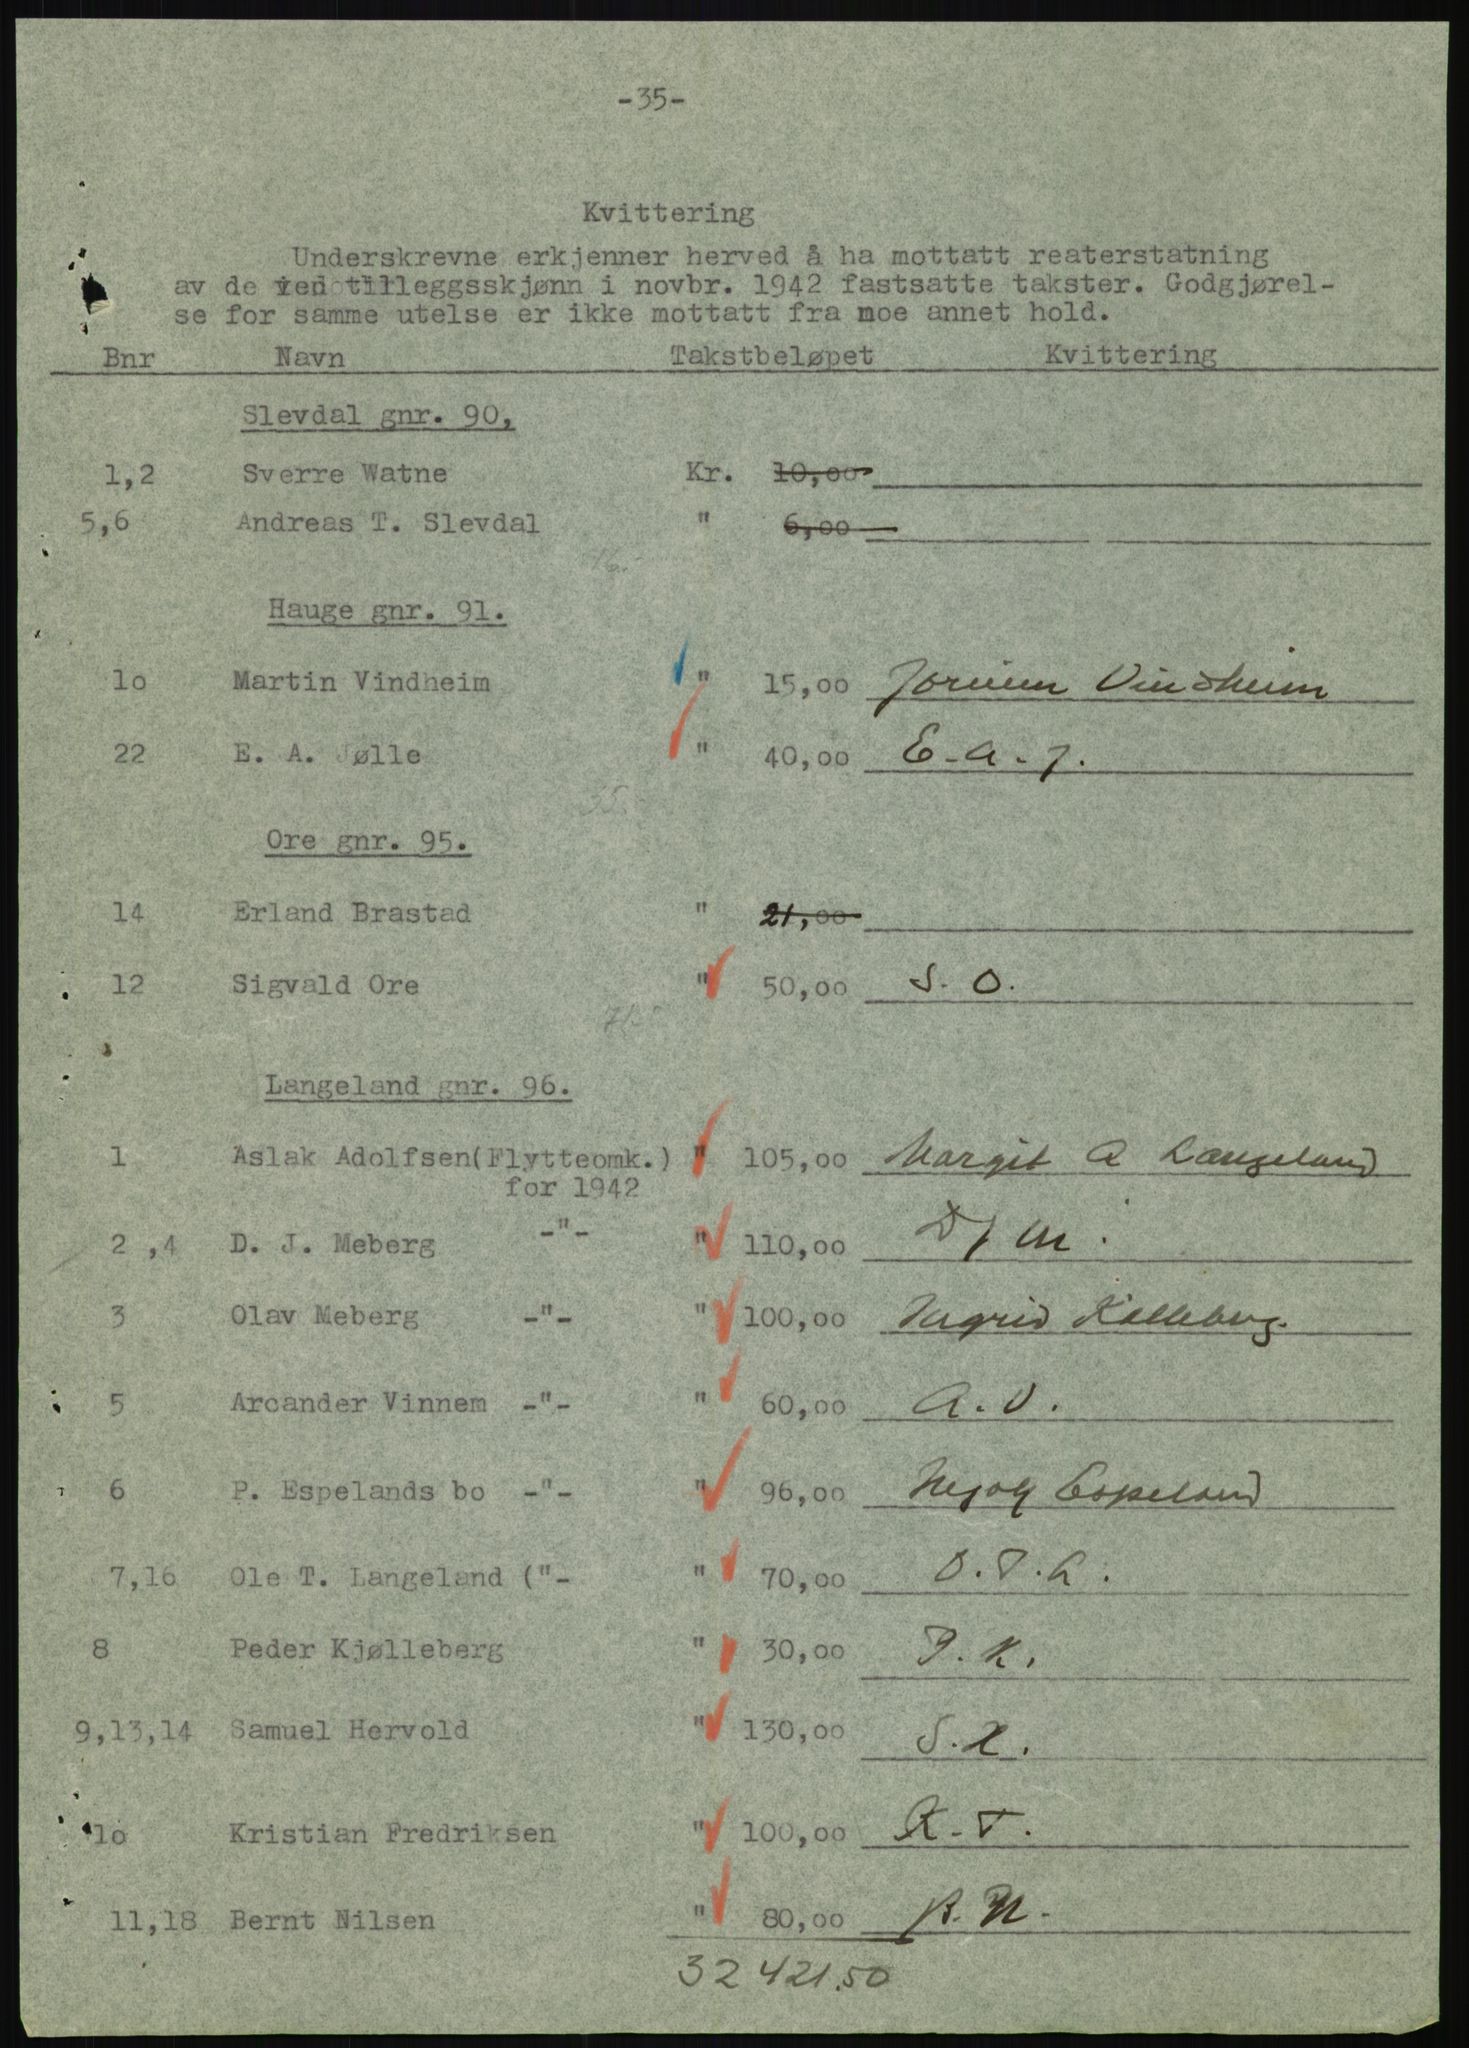 -35-
Kvittering
Underskrevne erkjenner herved å ha mottatt reaterstatning
av de ved tilleggsskjønn i novbr. 1942 fastsatte takster. Godgjørel-
se for samme utelse er ikke mottatt fra noe annet hold.
Bnr Navn Takstbeløpet Kvittering
Slevdal gnr. 90,
1,2 Sverre Watne Kr. 10,00
5,6 Andreas T. Slevdal " 6,00
16.-
Hauge gnr. 91.
lo Martin Vindheim " 15,00 Vindheim
22 E. A. Jølle " 40,00 E. A. J.
55.-
Ore gnr. 95.
14 Erland Brastad " 21,00
12 Sigvald Ore " 50,00 S. O.
71.-
Langeland gnr. 96.
1 Aslak Adolfsen(Flytteomk.) " 105,00 Margit A Langeland
for 1942
2 ,4 D. J. Meberg -"- " 110,00 D J M.
3 Olav Meberg -"- " 100,00 Ingrid Kalleberg.
5 Arcander Vinnem -"- " 60,00 A. V.
6 P. Espelands bo -"- " 96,00 Espeland
7,16 Ole T. Langeland ("- " 70,00 O. T. L.
8 Peder Kjølleberg " 30,00 P. K.
9,13,14 Samuel Hervold " 130,00 S. H.
lo Kristian Fredriksen " 100,00 K. F.
11,18 Bernt Nilsen " 80,00 B. N.
32 421.50